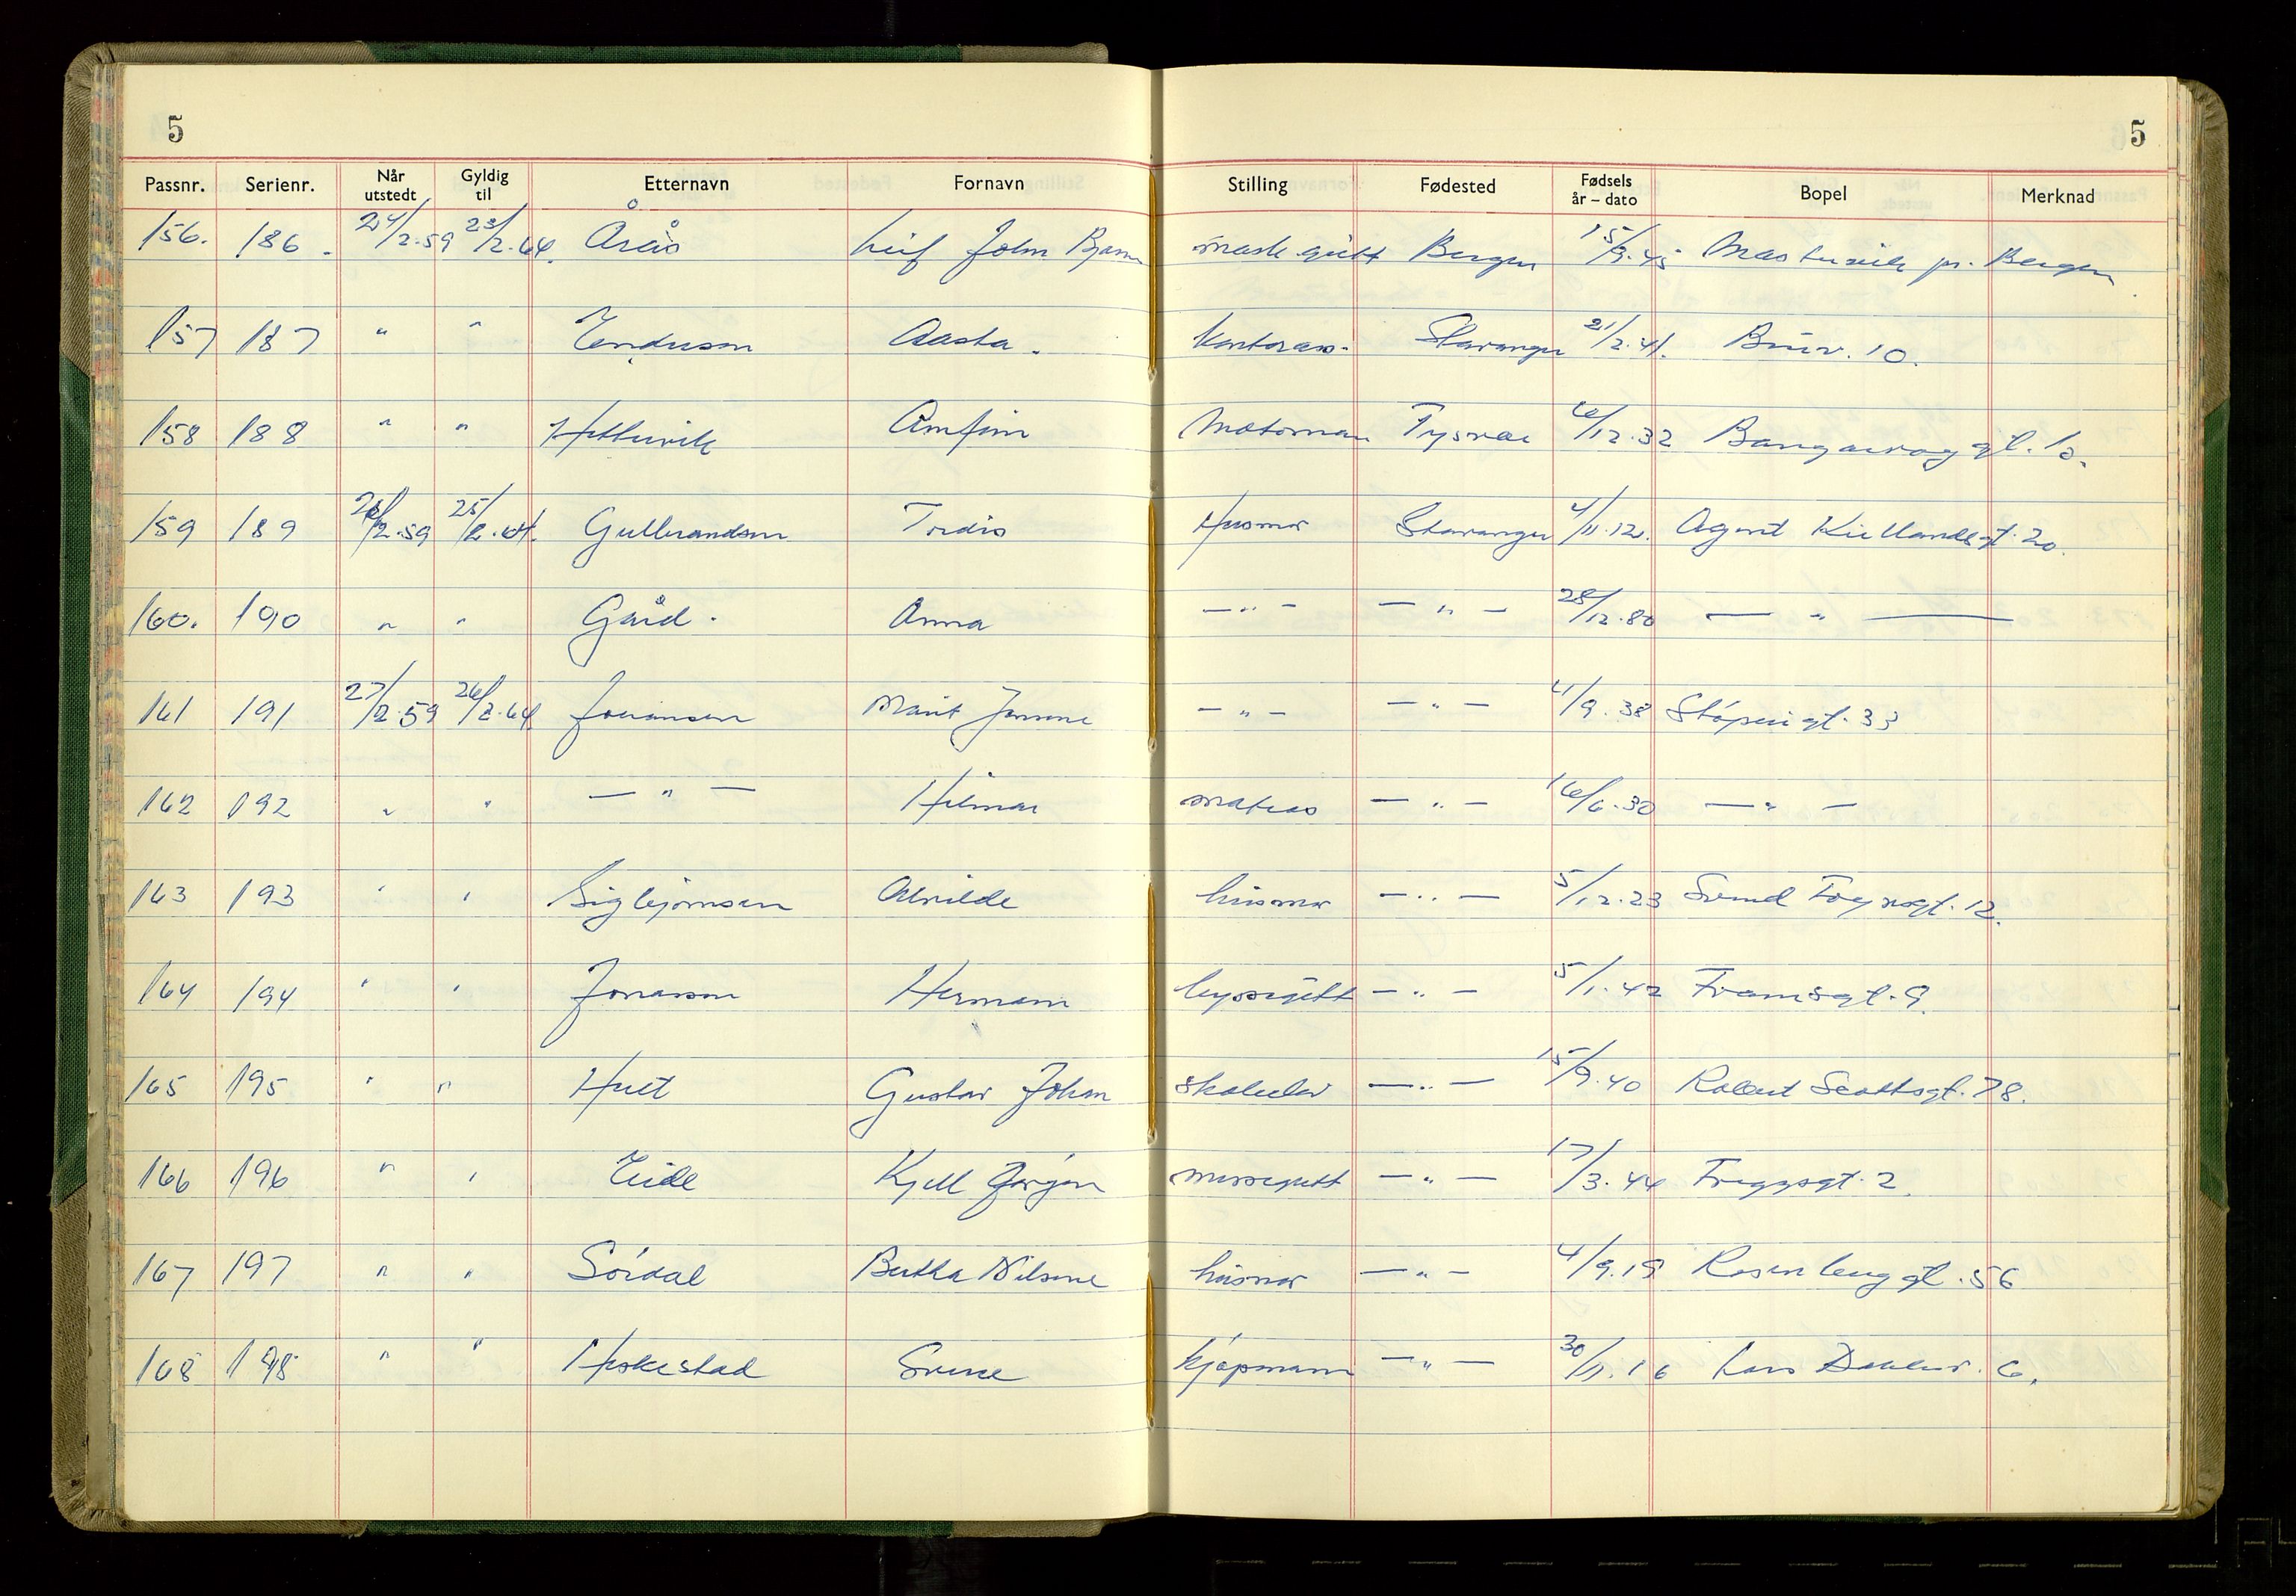 5 5
Passnr. Serienr. Når utstedt Gyldig til Etternavn Fornavn Stilling Fødested Fødsels år – dato Bopel Merknad
156. 186. 24/2.59 23/2.64. Årås Leif John Bjarne maskgutt Bergen 15/9.45 Mastuvik pr. Bergen
157 187 " " Endresen Aasta. kontorass. Stavanger 21/2.41. Buøv. 10.
158 188 " " Hettervik Arnfinn Motorman Tysvær 6/12.32 Bangavåggt. 1a.
159 189 26/2.59 25/2.64. Gulbrandsen Tordis Husmor Stavanger 4/11.12. Agent Kiellandsgt. 20.
160. 190 " " Gård. Anna — " — — " — 28/12.80 — " —
161 191 27/2.59 26/2.64 Johansen Marit Jonune — " — — " — 4/9.38 Støperigt. 33
162 192 " " — " — Hilmar matros — " — 16/6.30 — " —
163 193 " " Sigbjørnsen Alvilde husmor — " — 5/12.23 Svend Foynsgt. 12.
164 194 " " Jonassen Hermann byssegutt — " — 5/1.42 Framsgt. 9.
165 195 " " Hult Gustav Johan skoleelev — " — 15/9.40 Robert Scottsgt. 78.
166 196 " " Eide Kjell Jørgen messegutt — " — 17/3.44 Friggsgt. 2.
167 197 " " Sørdal Bertha Nilsine husmor — " — 4/9.19 Rosenberggt. 56
168 198 " " Heskestad Sverre kjøpmann — " — 30/11.16 Lars Dahlev. 6.